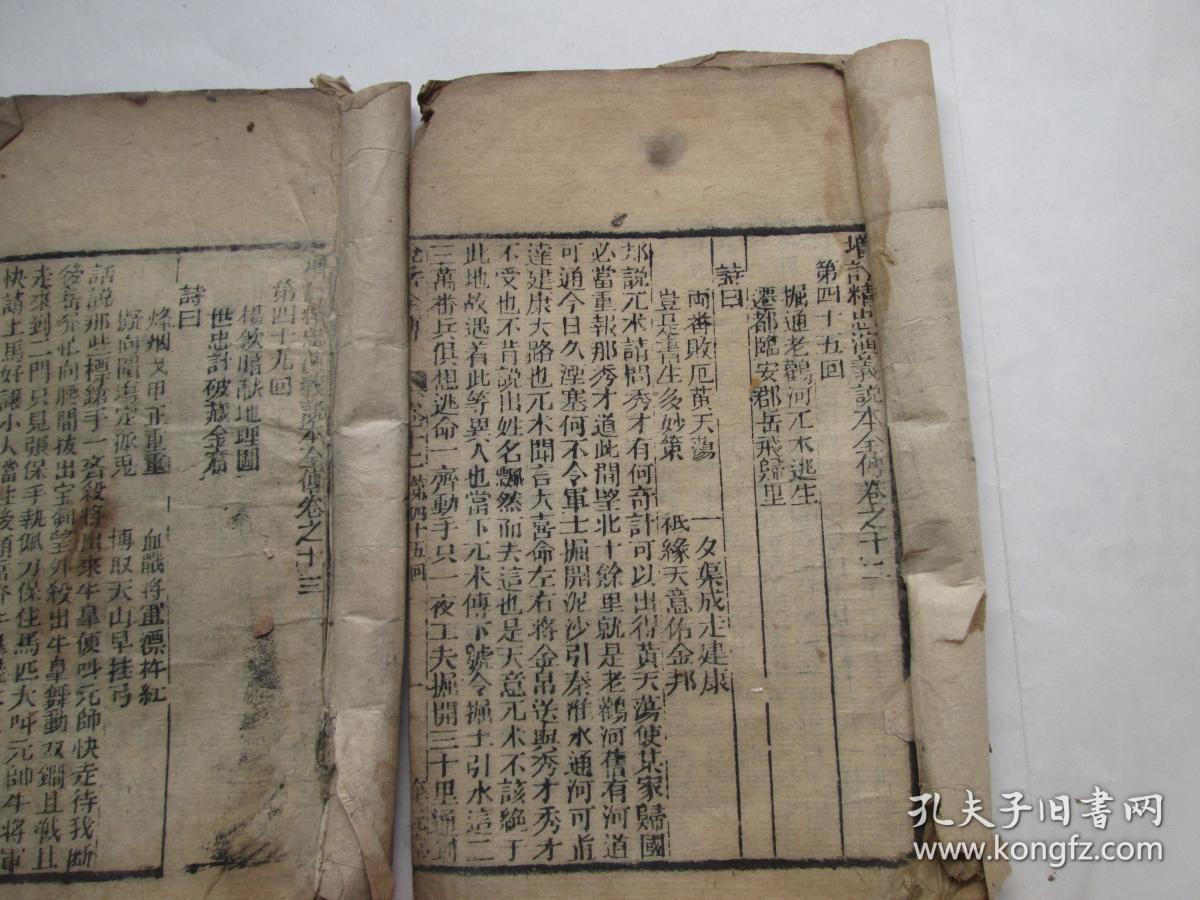 增訂精忠演義說本全傳卷之十二
第四十五回
掘通老鸛河兀术逃生
遷都臨安郡岳飛歸里
詩曰
兩番敗厄黃天蕩
一夕集成走建康
豈是書生多妙策
祇緣天意佑金邦
却說兀术請問秀才有何奇計可以出得黃天蕩使某家歸國
必當重報那秀才道此間望北十餘里就是老鸛河舊有河道
可通今日久湮塞何不令軍士掘開泥沙引秦淮水通河可直
達建康大路也兀术聞言大喜命左右將金帛送與秀才秀才
不受也不肯說出姓名飄然而去這也是天意兀术不該絶于
此地故遇着此等異人也當下兀术傳下號令掘土引水這二
三萬番兵俱想逃命一齊動手只一夜工夫掘開三十里通到
第四十五回
一
增訂精忠演義說本全傳卷之十三
第四十九回
楊欽暗献地理圖
世忠計破藏金窟
詩曰
烽烟戈甲正重重
血戰將軍漂杵紅
擬向闈塲定狐兎
博取天山早挂弓
話說那些標鎗手一齊殺將出來牛皐便叫元帥快走待我斷
後岳爺忙向腰間拔出宝劍望外殺出牛皐舞動双鐧且戰且
走來到二門只見張保手執佩刀保住馬匹大叫元帥牛將軍
快請上馬好讓小人當
孔夫子旧书网
www.kongfz.com